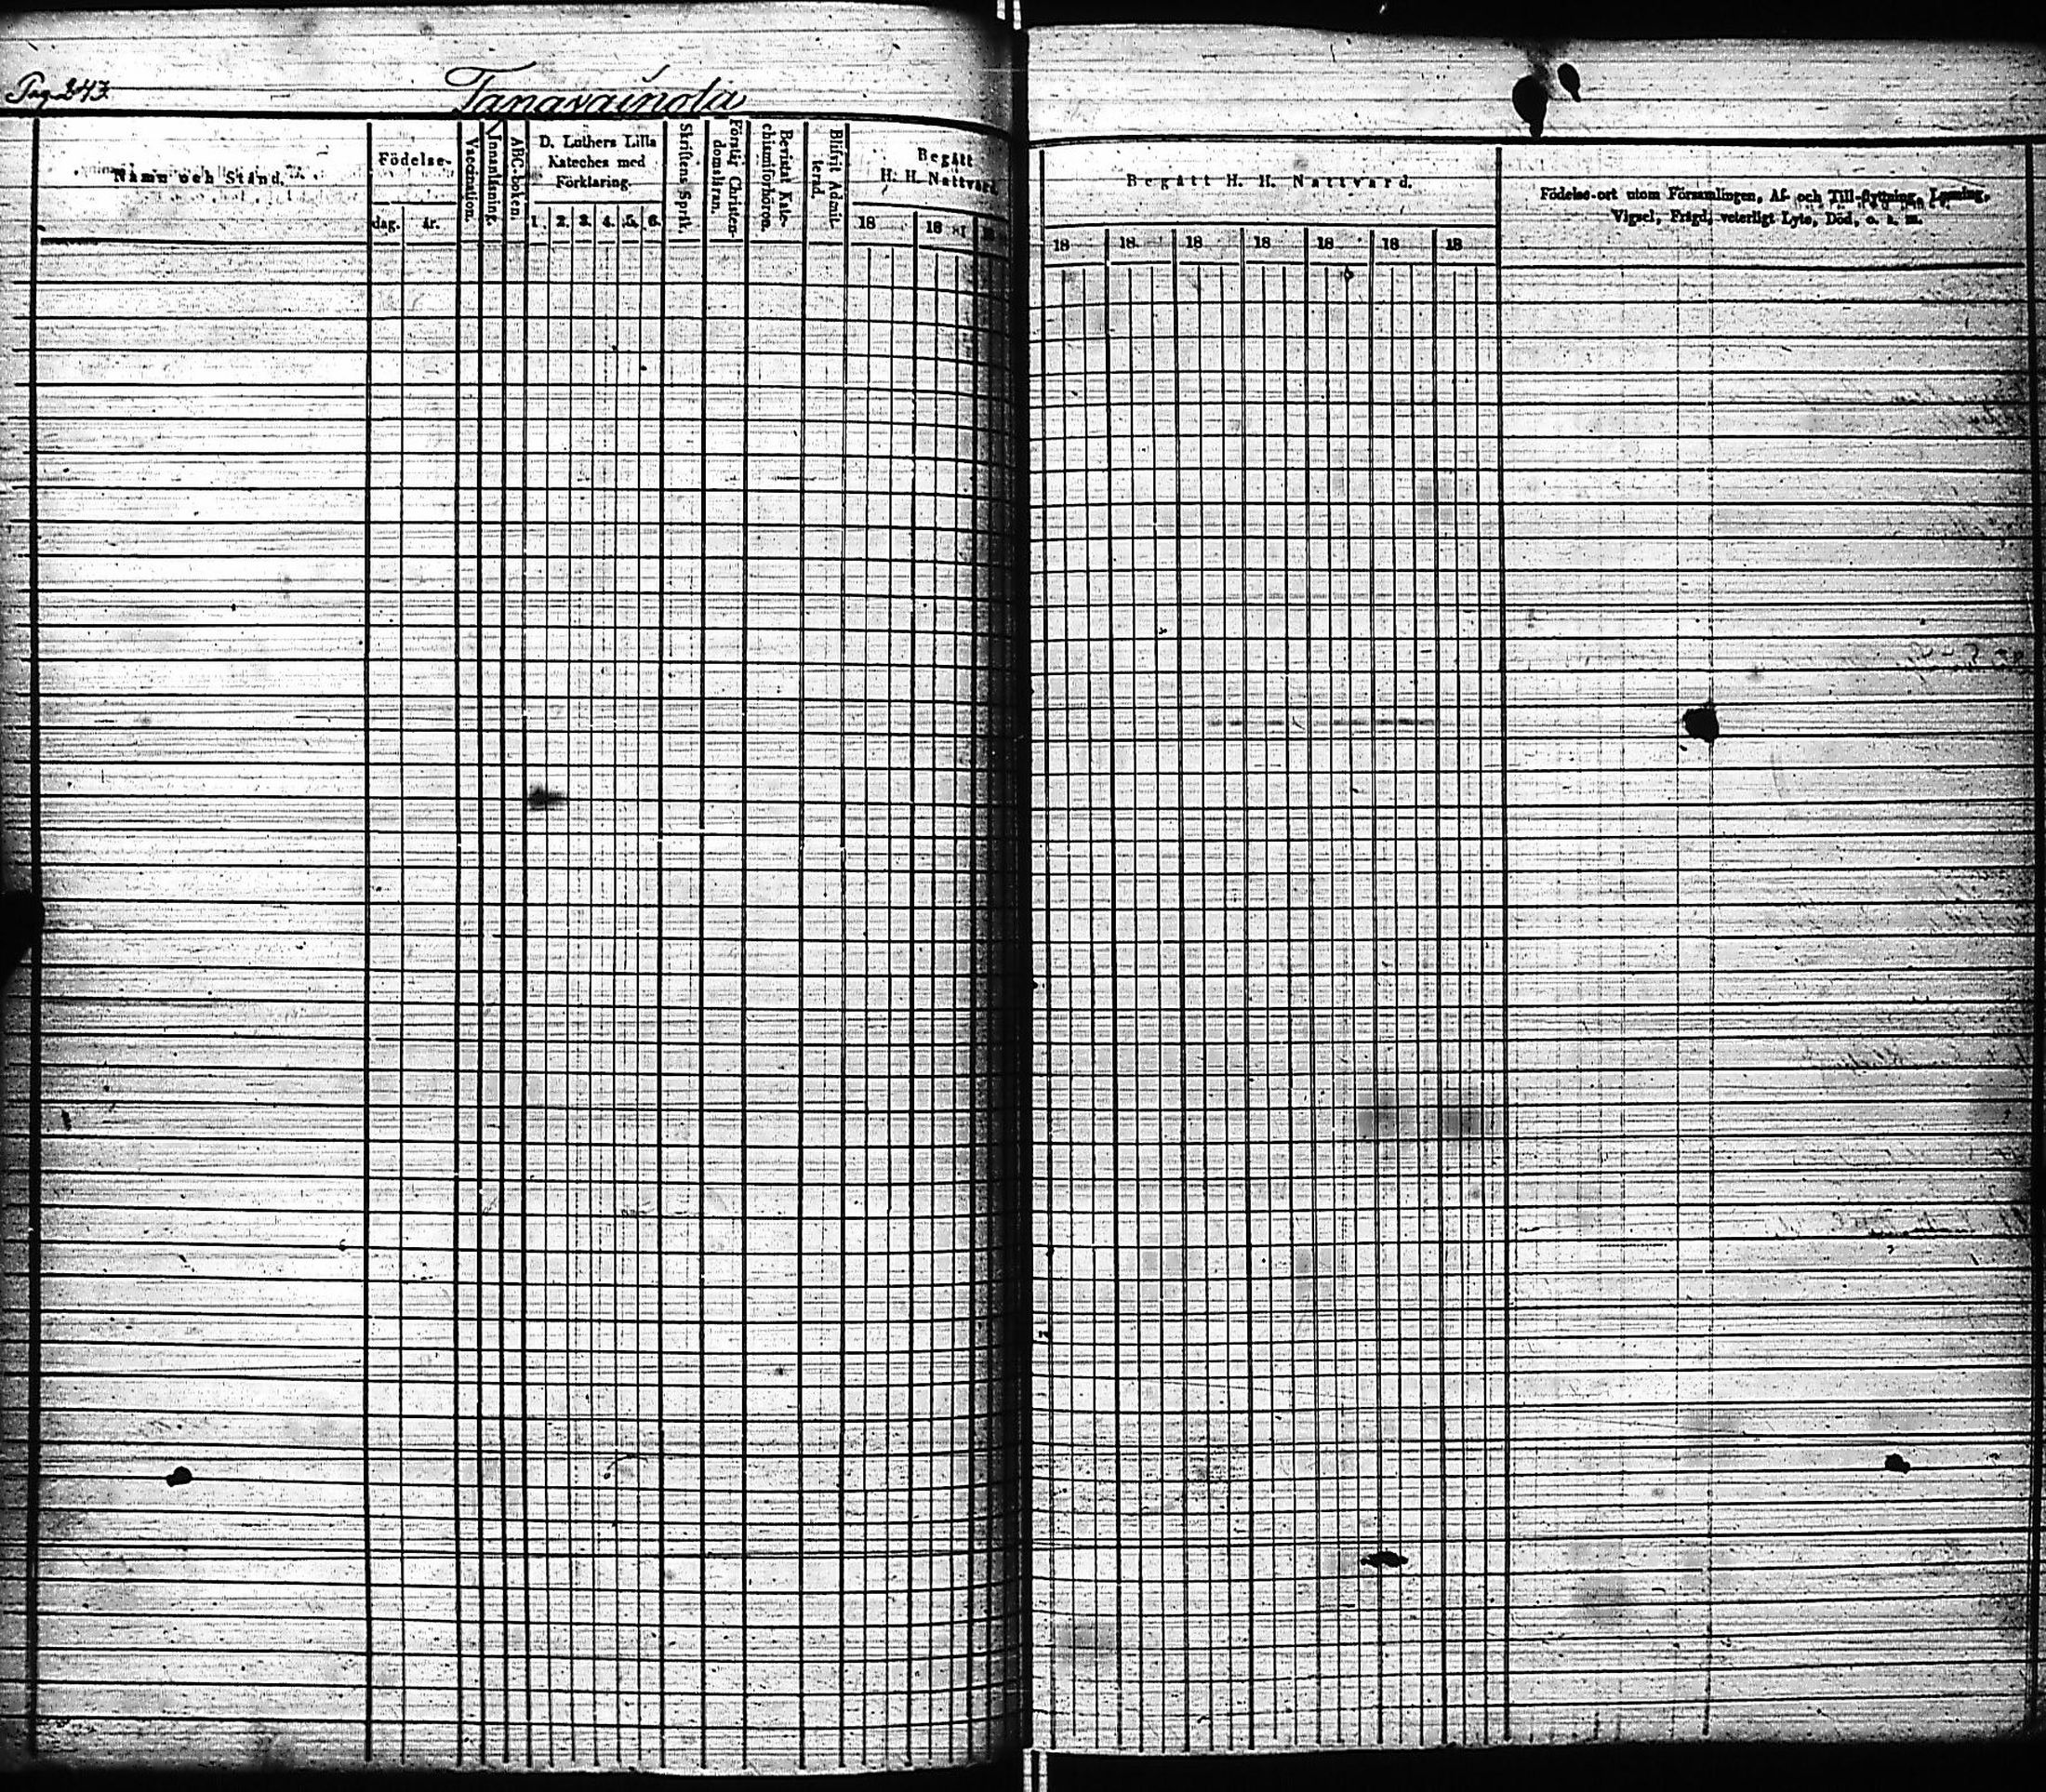 Pag. 243.
Tanavainola
Namn och Stånd.
Födelse-
dag. år.
Vaccination.
Innanläsning.
ABC-boken.
D. Luthers Lilla
Kateches med
Förklaring.
1. 2. 3. 4. 5. 6.
Skriftens Språk.
Förstår Christen-
domsläran.
Bevistat Kate-
chismiförhören.
Blifvit Admit-
terad.
Begått
H. H. Nattvard.
18 18 18
Begått H. H. Nattvard.
18 18 18 18 18 18 18
Födelse-ort utom Församlingen, Af- och Till-flyttning, Lysning,
Vigsel, Frägd, veterligt Lyte, Död, o. s. m.